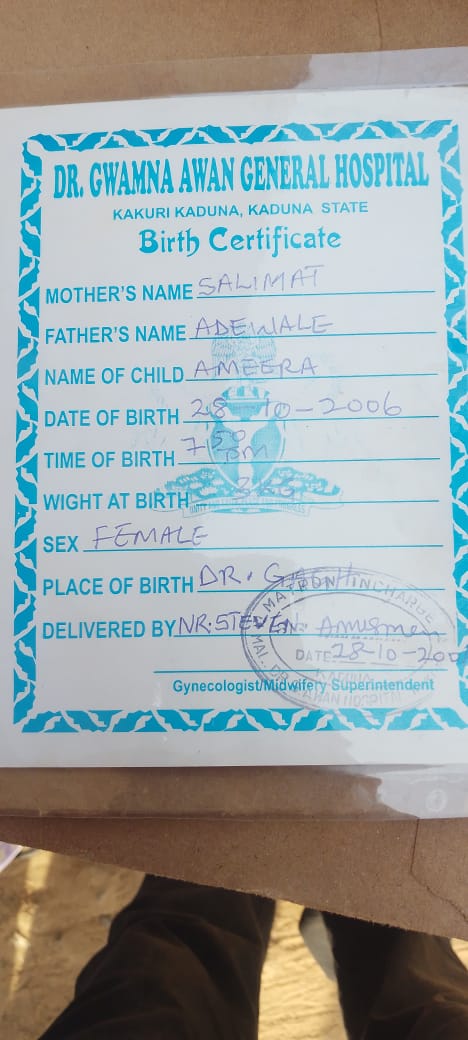 DR. GWAMNA AWAN GENERAL HOSPITAL
KAKURI KADUNA, KADUNA STATE
Birth Certificate
MOTHER'S NAME SALIMAT
FATHER'S NAME ADEWALE
NAME OF CHILD AMEERA
DATE OF BIRTH 28 - 10 - 2006
TIME OF BIRTH 7 50 PM
WIGHT AT BIRTH
SEX FEMALE
PLACE OF BIRTH DR. G
DELIVERED BY NR. STEVEN
MATRON INCHARGE
DATE: 28-10-200
KADUNA
Gynecologist/Midwifery Superintendent